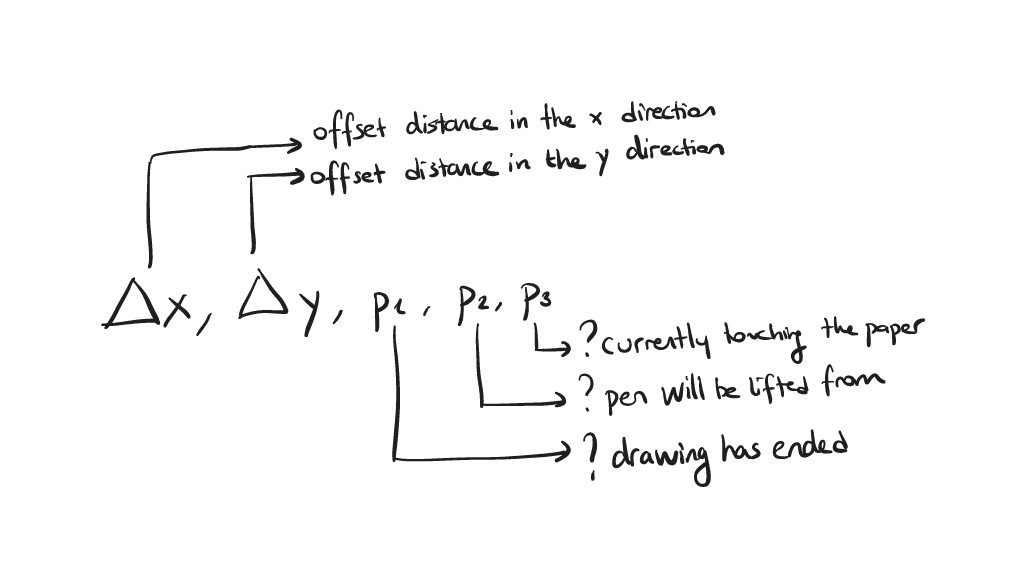 offset distance in the x direction
offset distance in the y direction
Δx, Δy, p1, p2, p3
? currently touching the paper
? pen will be lifted from
? drawing has ended